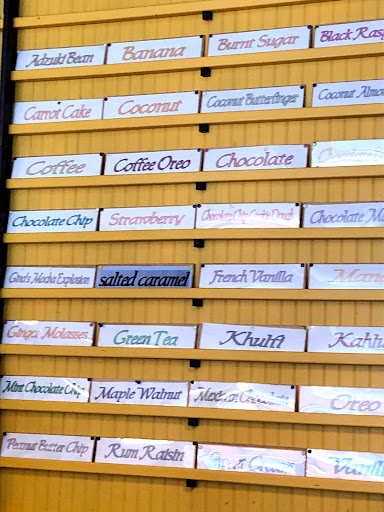 Adzuki Bean Banana Burnt Sugar Black Rasp
Carrot Cake Coconut Coconut Butterfinger Coconut Almo
Coffee Coffee Oreo Chocolate
Chocolate Chip Strawberry Chocolate Chip Cookie Dough Chocolate M
Gina's Mocha Explosion salted caramel French Vanilla Mang
Ginger Molasses Green Tea Khulfi Kahlu
Mint Chocolate Chip Maple Walnut Mexican Chocolate Oreo
Peanut Butter Chip Rum Raisin Vanill